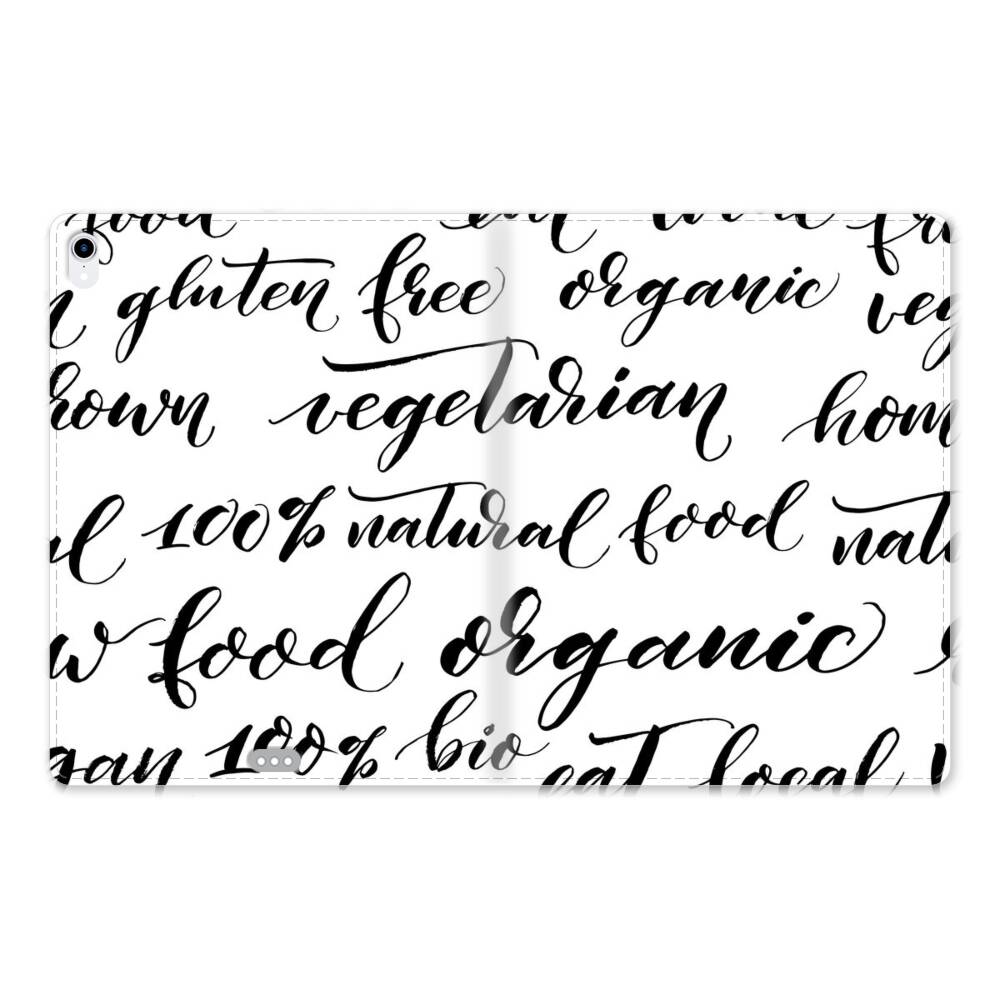 food eat
gluten free organic veg
rown vegetarian hom
100% natural food natu
w food organic
gan 100% bio eat local